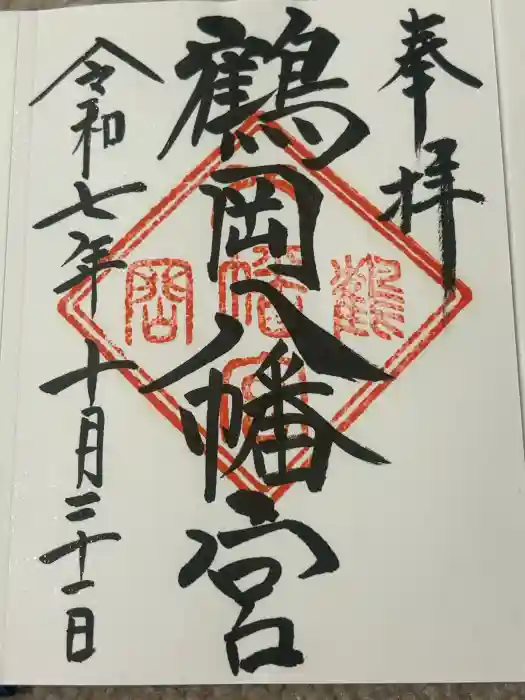 奉拝
鶴岡八幡宮
令和七年十月三十一日
鶴
幡
岡